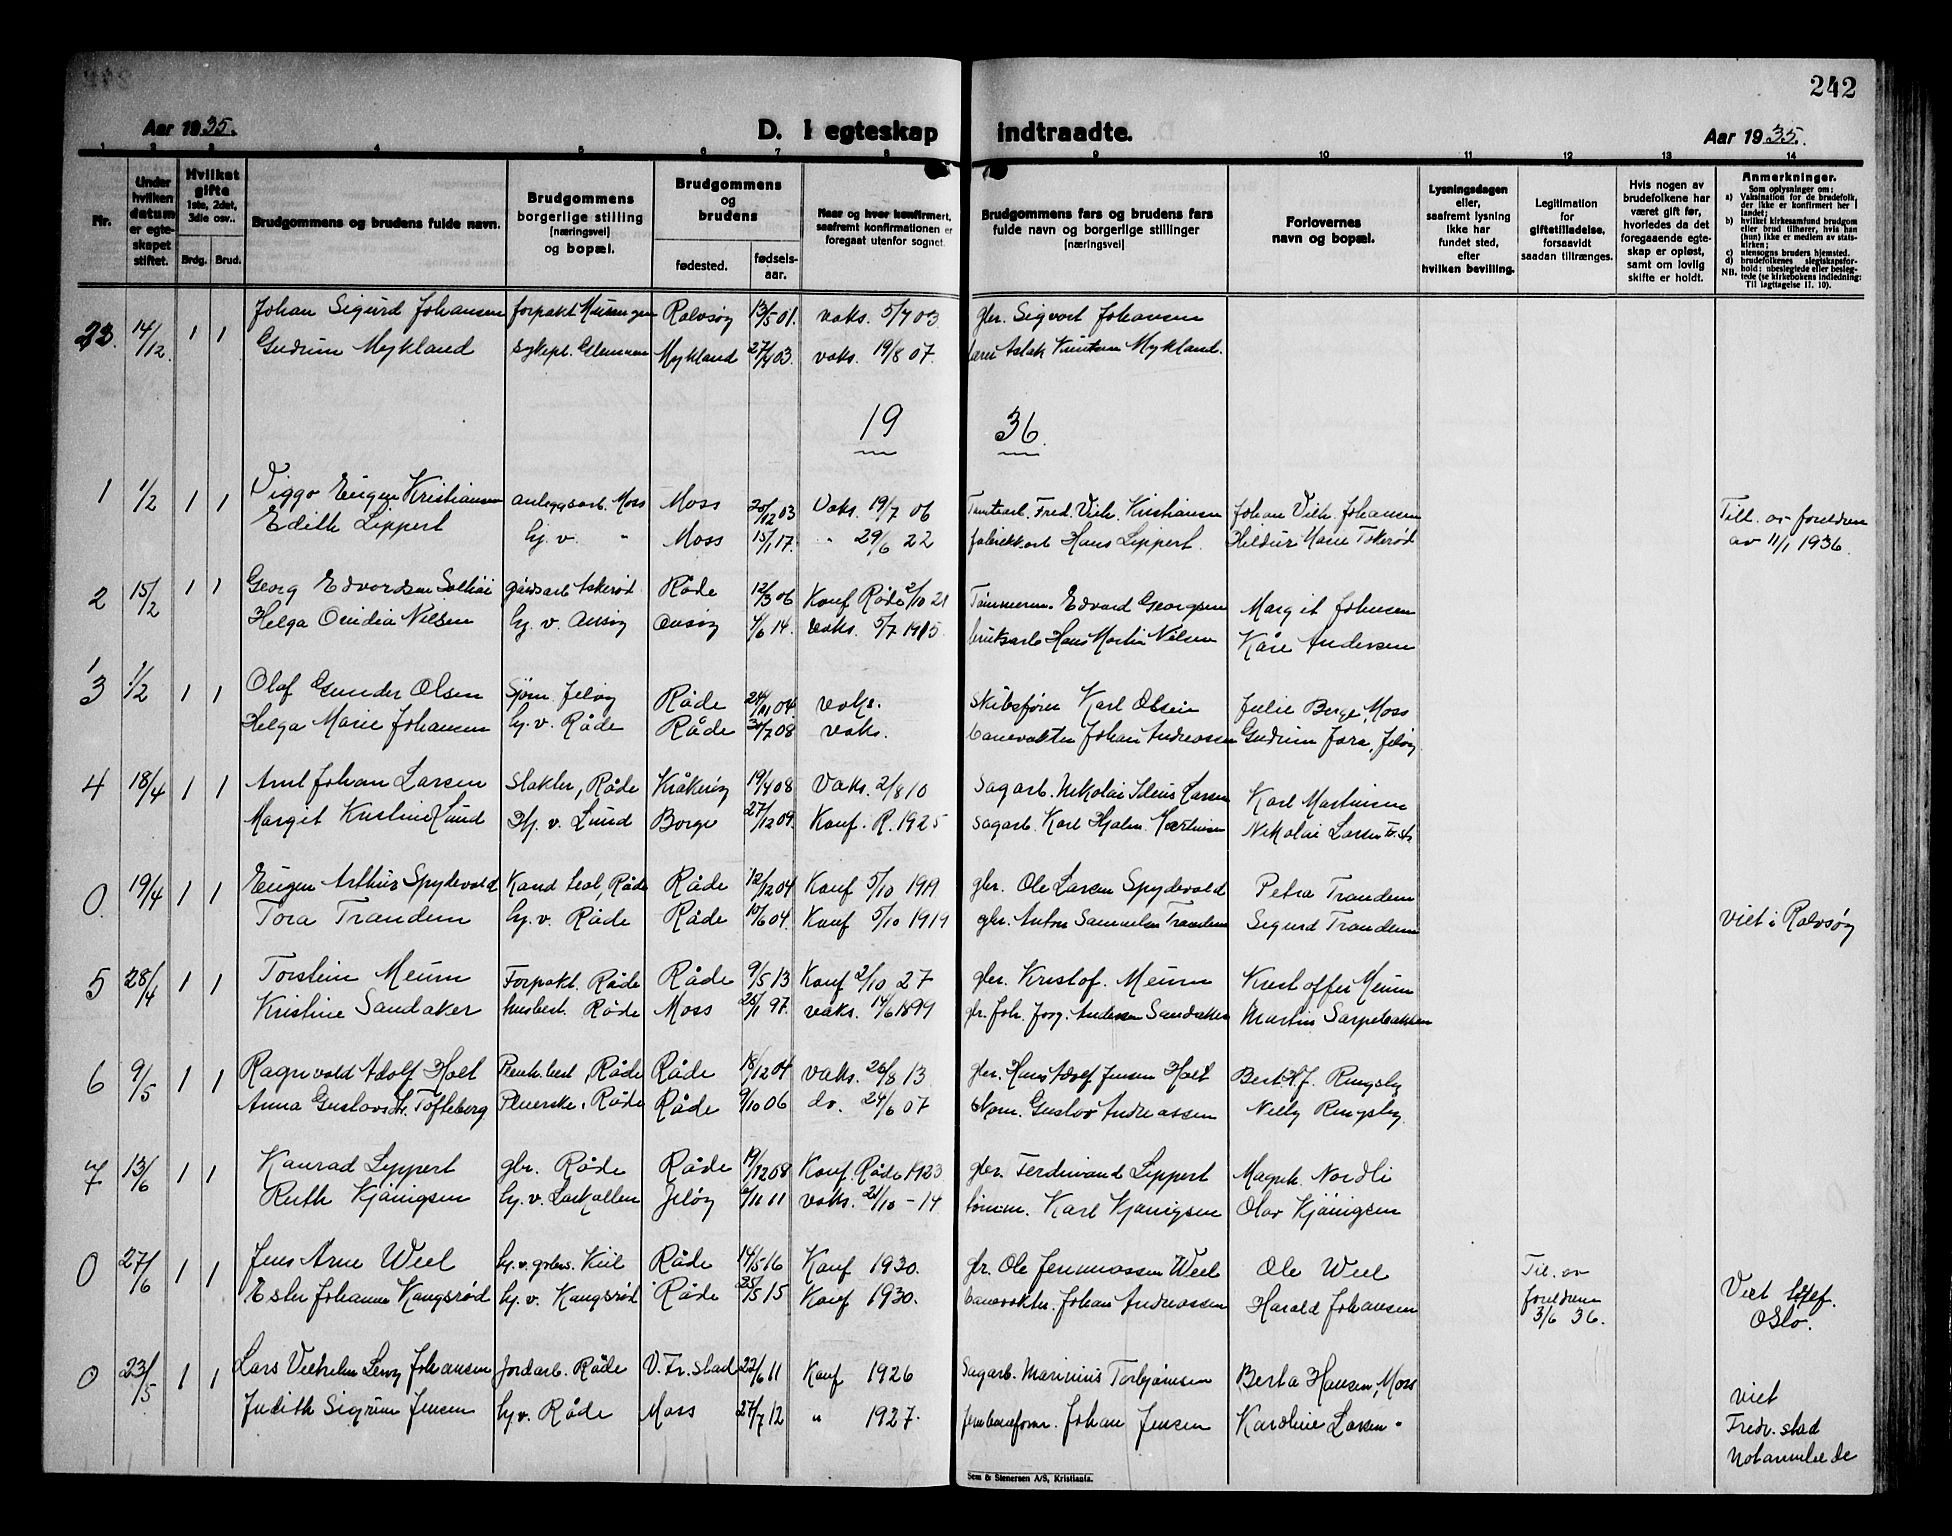 242
Aar 1935.
D. I egteskap indtraadte.
Aar 1935.
1 2 3 4 5 6 7 8 9 10 11 12 13 14
Nr.
Under hvilken datum er egteskapet stiftet.
Hvilket gifte 1ste, 2det, 3die osv..
Brdg. Brud.
Brudgommens og brudens fulde navn.
Brudgommens borgerlige stilling [næringsvei] og bopæl.
Brudgommens og brudens
fødested.
fødselsaar.
Naar og hvor konfirmert, saafremt konfirmationen er foregaat utenfor sognet.
Brudgommens fars og brudens fars fulde navn og borgerlige stillinger [næringsvei]
Forlovernes navn og bopæl.
Lysningsdagen eller, saafremt lysning ikke har fundet sted, efter hvilken bevilling.
Legitimation for giftetilladelse, forsaavidt saadan tiltrænges.
Hvis nogen av brudefolkene har været gift før, hvorledes da det foregaaende egteskap er opløst, samt om lovlig skifte er holdt.
Anmerkninger.
Som oplysninger om:
a) Vaksination for de brudefolk, der ikke er konfirmert her i landet;
b) hvilket kirkesamfund brudgom eller brud tilhører, hvis han (hun) ikke er medlem av statskirken;
c) utensogns bruders hjemsted.
d) brudefolkenes slegtskapsforhold: ubeslegtede eller beslegtede (se kirkebokens indledning:
NB. Til Iagttagelse II. 10).
23. 14/12. 1 1 Johan Sigurd Johansen forpakt Rolvsøy 13/5 01. vaks. 5/7 03 gbr. Sigvart Johansen
Gudrun Mykland sykepl. Glemmen Mykland 27/4 03. vaks. 19/8 07. Aslak Knutsen Mykland.
19 36.
1 1/2 1 1 Viggo Eugen Kristiansen anleggsarb. Moss Moss 20/12 03 Vaks. 19/7 06 Fred. Vilh. Kristiansen Johan Vilh. Johansen Till. av foreldrene
Edith Lippert hj. v. " Moss 15/1 17. " 29/6 22 fabrikkarb Hans Lippert. Marie Tokerød av 11/1 1936.
2 15/2 1 1 Georg Edvardsen gårdsarb Askerød Råde 12/3 06 Konf Råde 2/10 21 Tømmerm. Edvard Georgsen Margit Johnsen
Helga Ovidia Nilsen hj. v. Onsøy Onsøy 4/6 14. vaks. 5/7 1915. bruksarb Hans Martin Nilsen Kåre Andersen
3 1/2 1 1 Olaf Gunder Olsen Sjøm Jeløy Råde 24/11 04. vaks. Skibsfører Karl Olsen Julie Berge, Moss
Helga Marie Johansen hj. v. Råde Råde 30/7 08 vaks. banevokter Johan Andreassen Gudrun Jara, Jeløy
4 18/4 1 1 Arnt Johan Larsen Slakter, Råde Kråkerøy 19/4 08 Vaks. 2/8 10 Sagarb. Nikolai Larsen Karl Martinsen
Margit Kristine Lund Hj. v. Lund Borge 27/12 09. Konf. R. 1925 sagarb. Karl Hjalm. Martinsen Nikolai Larsen Fr.st.
0 19/4 1 1 Eugen Arthur Spydevold Kand Råde Råde 12/12 04 Konf 5/10 1919 gbr. Ole Larsen Spydevold Petra Trandem
Tora Trandem hj. v. Råde Råde 10/6 04. Konf 5/10 1919 gbr. Anton Samuelsen Trandem Sigurd Trandem viet i Rolvsøy
5 28/4 1 1 Torstein Meum Forpakt. Råde Råde 9/5 13 Konf 2/10 27 gbr. Kristof. Meum Kristoffer Meum
Kristine Sandaker husbest. Råde Moss 25/1 97. vaks. 14/6 1899 gbr. Joh. Jørg. Andersen Sandaker Martin Sarpebakken
6 9/5 1 1 Ragnvald Adolf Holt Råde Råde 18/12 04 vaks. 28/8 13 gbr. Hans Adolf Jensen Holt Bert H J. Ringsby
Anna Gustavsdtr. Tofteberg Pleierske, Råde Råde 9/10 06 do. 24/6 07 Gustav Andreassen Nelly Ringsby
7 13/6 1 1 Konrad Lippert gbr. Råde Råde 19/12 08 Konf. Råde 1923 gbr. Ferdinand Lippert Magnh. Nordli
Ruth Kjønigsen hj. v. Larkollen Jeløy 6/11 11 vaks. 21/10 - 14 tømm. Karl Kjønigsen Olav Kjønigsen
0 27/6 1 1 Jens Arne Weel Råde 14/5 16 Konf 1930. gbr. Ole Jenmassen Weel Ole Weel Til. av
Ester Johanne Kangsrød hj. v. Kangsrød Råde 25/5 15 Konf 1930. banevokter. Johan Andreassen Harald Johansen foreldrene 3/6 36. Viet
Oslo.
0 23/5 1 1 Lars Vilhelm Levy Johansen Jordarb. Råde V. Fr. stad 22/6 11 Konf 1926 Sagarb. Marinius Torbjørnsen Berta Hansen, Moss viet
Judith Sigrun Jensen hj v. Råde Moss 27/7 12 " 1927. jernbaneform. Johan Jensen Karoline Larsen " Fredr. stad
Notarius
Sem & Stenersen A/S, Kristiania.